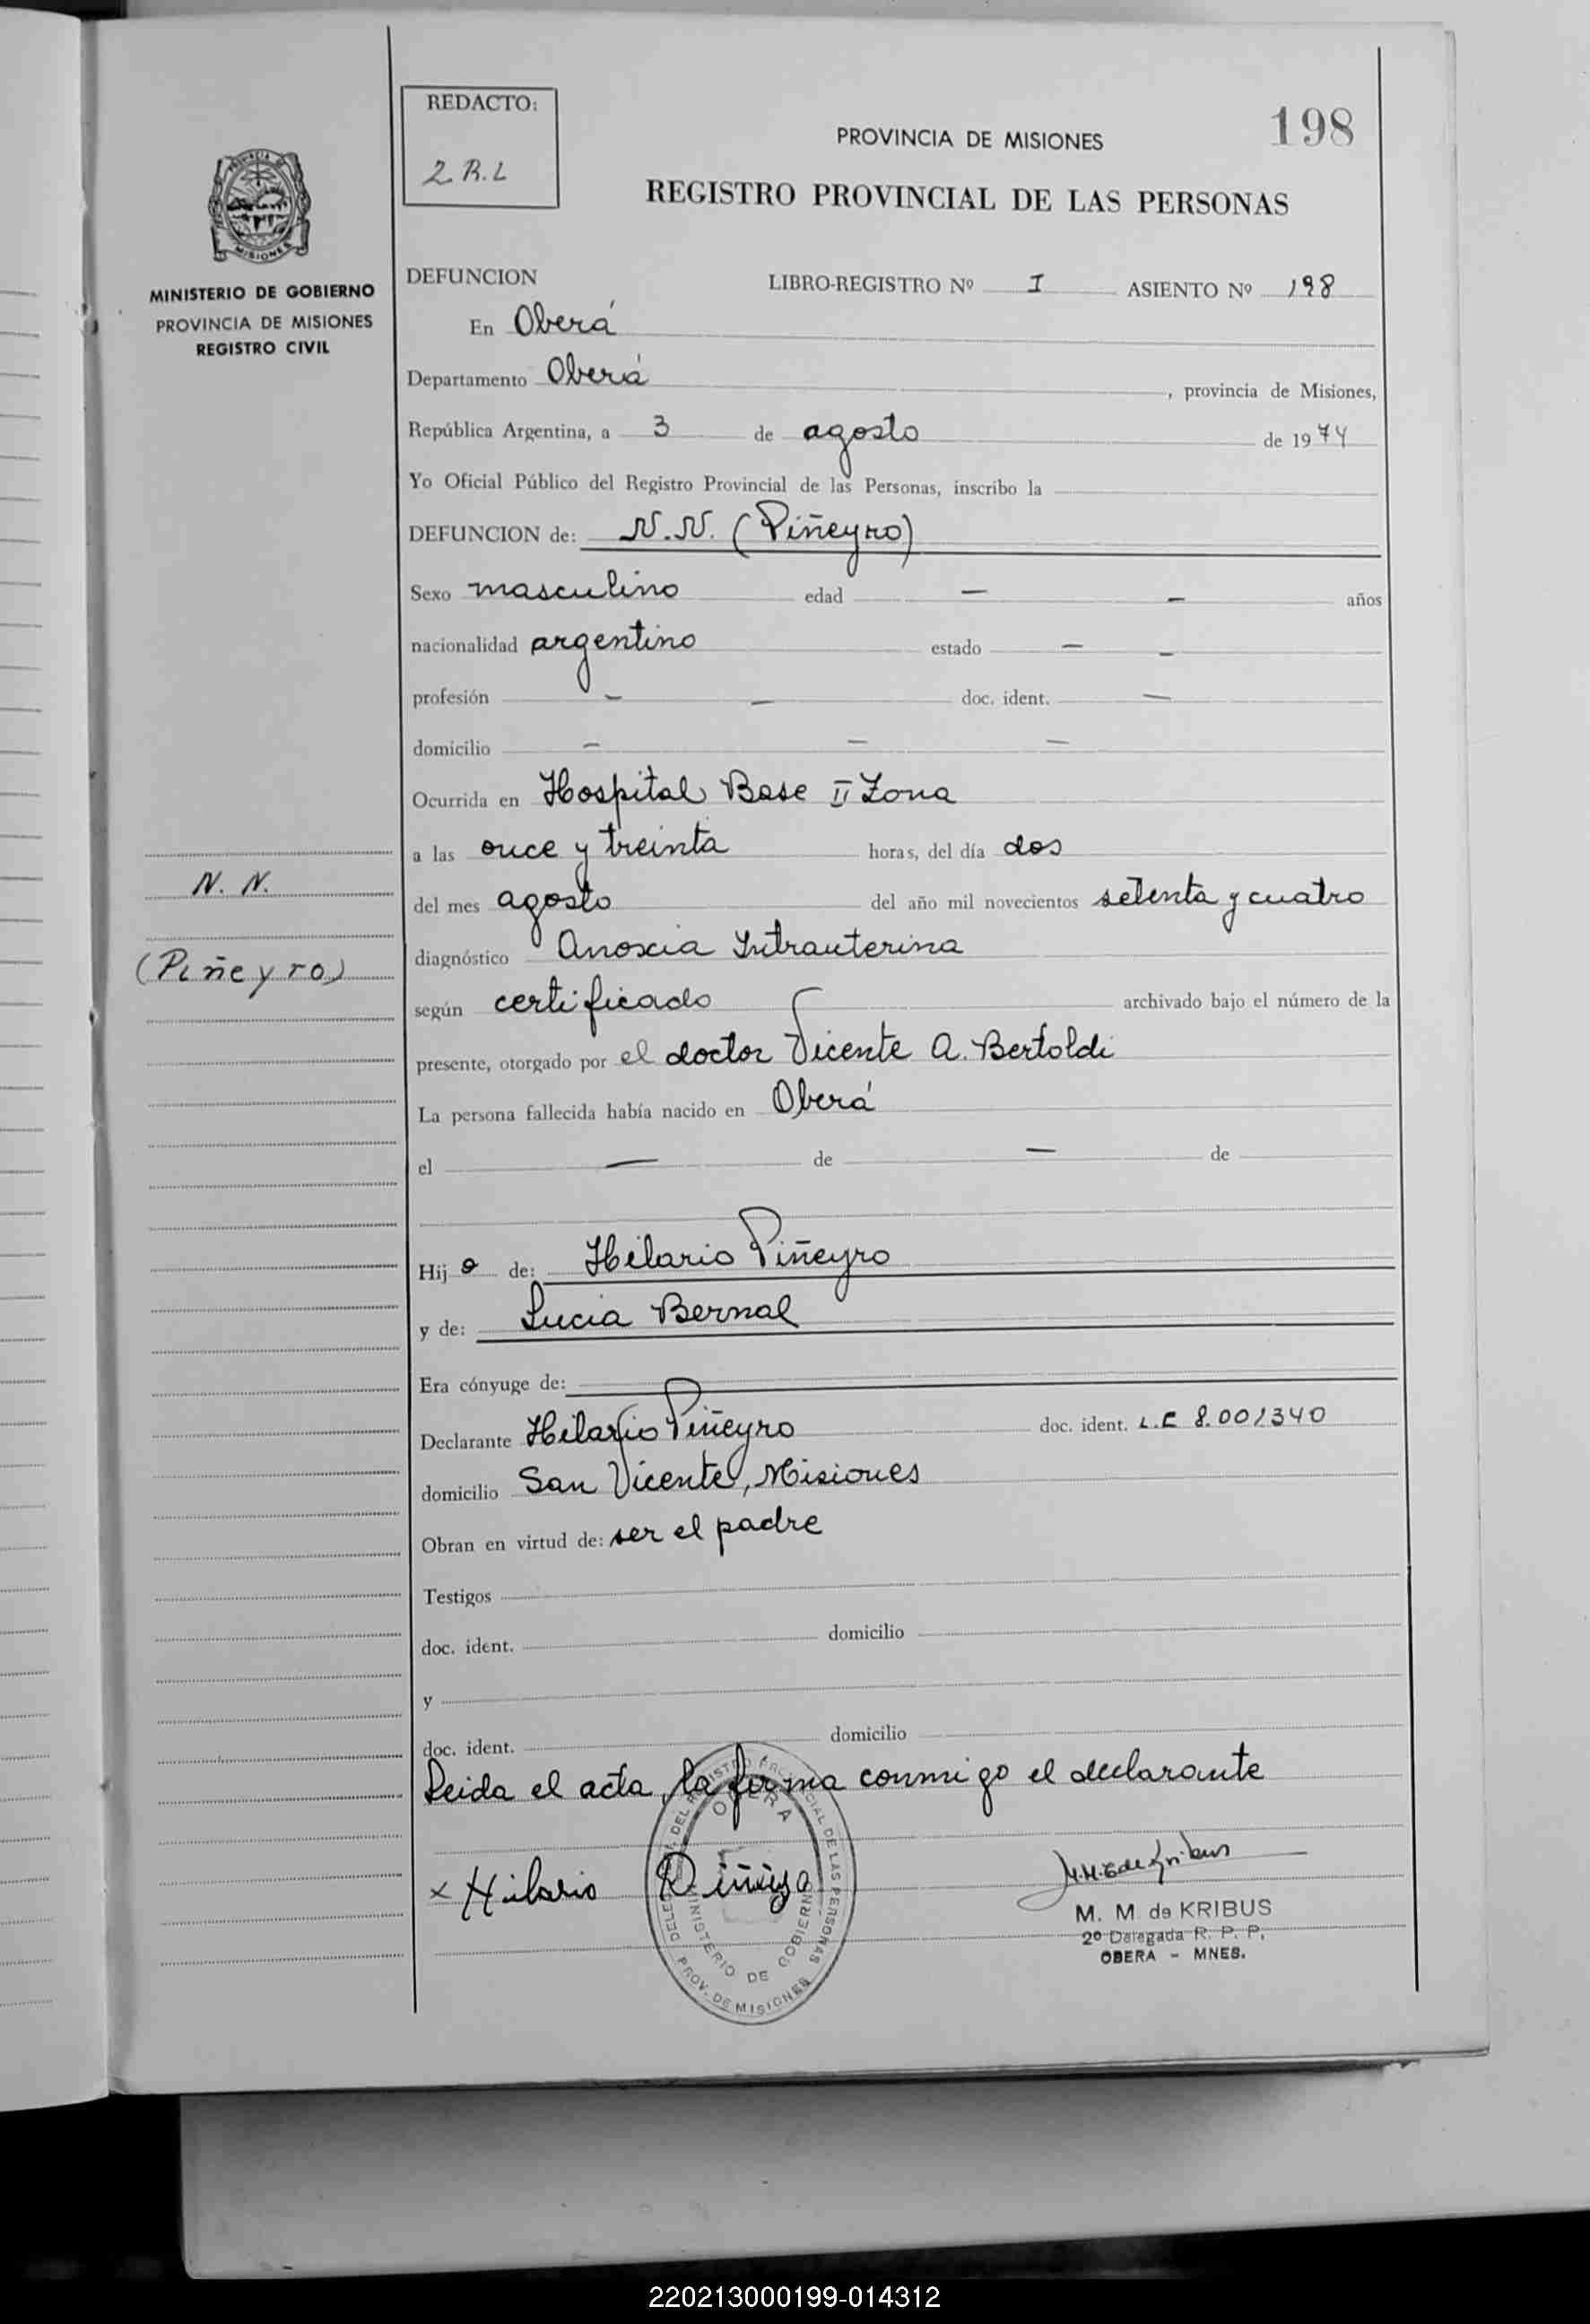 REDACTO:
2 R.L
198
PROVINCIA DE MISIONES
REGISTRO PROVINCIAL DE LAS PERSONAS
PROVINCIA DE
MISIONES
MINISTERIO DE GOBIERNO
PROVINCIA DE MISIONES
REGISTRO CIVIL
DEFUNCION LIBRO-REGISTRO Nº I ASIENTO Nº 198
En Oberá
Departamento Oberá, provincia de Misiones,
República Argentina, a 3 de agosto de 1974
Yo Oficial Público del Registro Provincial de las Personas, inscribo la
DEFUNCION de: N.N. (Piñeyro)
Sexo masculino edad — — años
nacionalidad argentino estado — —
profesión — — doc. ident. —
domicilio — — —
Ocurrida en Hospital Base II Zona
a las once y treinta horas, del día dos
N. N.
del mes agosto del año mil novecientos setenta y cuatro
(Piñeyro)
diagnóstico Anoxia Intrauterina
según certificado archivado bajo el número de la
presente, otorgado por el doctor Vicente A. Bertoldi
La persona fallecida había nacido en Oberá
el — de — de
Hijo de: Hilario Piñeyro
y de: Lucia Bernal
Era cónyuge de:
Declarante Hilario Piñeyro doc. ident. L.E 8.001340
domicilio San Vicente, Misiones
Obran en virtud de: ser el padre
Testigos
doc. ident. domicilio
y
doc. ident. domicilio
Leida el acta, la firma conmigo el declarante
DEL REGISTRO PROVINCIAL DE LAS PERSONAS
OBERA
MINISTERIO DE GOBIERNO
PROV. DE MISIONES
x Hilario Piñeyo
M. M. de KRIBUS
2º Delegada R. P. P.
OBERA - MNES.
220213000199-014312